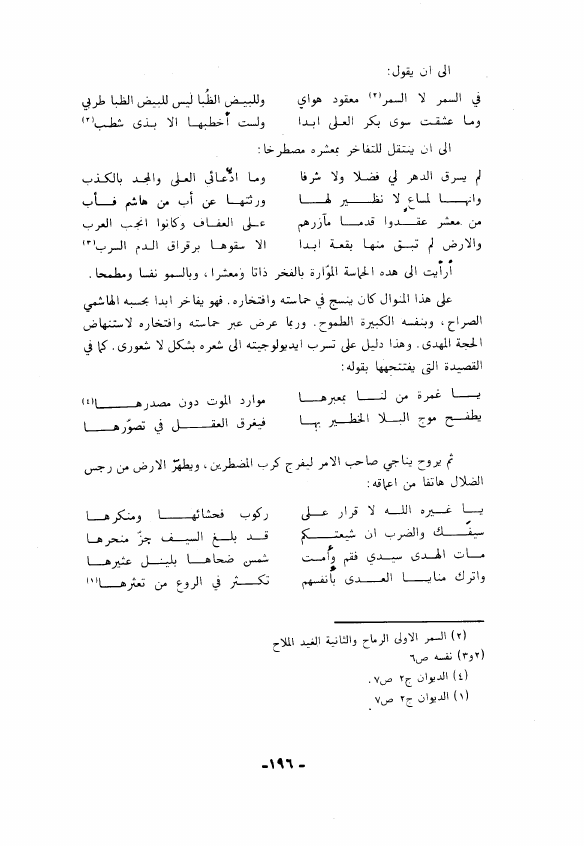 الى ان يقول:
في السمر لا السمر(٢) معقود هواي وللبيض الظُبا ليس للبيض الظبا طربي
وما عشقت سوى بكر العلى ابدا ولست أخطبها الا بذى شطب(٢)
الى ان ينتقل للتفاخر بمعشره مصطرخا:
لم يسرق الدهر لي فضلا ولا شرفا وما ادّعائى العلى والمجد بالكذب
وانها لمساعٍ لا نظير لها ورثتها عن أب من هاشم فأب
من معشر عقدوا قدما مآزرهم على العفاف وكانوا انجب العرب
والارض لم تبق منها بقعة ابدا الا سقوها برقراق الدم السرب(٣)
أرأيت الى هذه الحماسة الموّارة بالفخر ذاتا ومعشرا، وبالسمو نفسا ومطمحا.
على هذا المنوال كان ينسج في حماسته وافتخاره. فهو يفاخر ابدا بحسبه الهاشمي
الصراح، وبنفسه الكبيرة الطموح. وربما عرض عبر حماسته وافتخاره لاستنهاض
الحجة المهدى. وهذا دليل على تسرب ايديولوجيته الى شعره بشكل لا شعورى. كما في
القصيدة التي يفتتحها بقوله:
يا غمرة من لنا بمعبرها موارد الموت دون مصدرها(٤)
يطفح موج البلا الخطير بها فيغرق العقل في تصوّرها
ثم يروح يناجي صاحب الامر ليفرج كرب المضطرين، ويطهّر الارض من رجس
الضلال هاتفا من اعماقه:
يا غيره الله لا قرار على ركوب فحشائها ومنكرها
سيفك والضرب ان شيعتكم قد بلغ السيف جزّ منحرها
مات الهدى سيدي فقم وأمت شمس ضحاها بليل عثيرها
واترك منايا العدى بأنفسهم تكثر في الروع من تعثرها(١)
(٢) السمر الاولى الرماح والثانية الغيد الملاح
(٢و٣) نفسه ص٦
(٤) الديوان ج٢ ص٧.
(١) الديوان ج٢ ص٧.
-١٩٦-